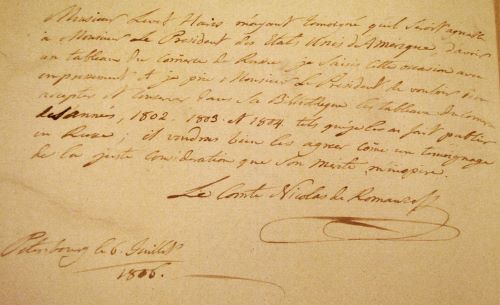 Monsieur Levet Haris m'ayant temoigné qu'il seroit agreable
à Monsieur Le President des Etats Unis d'Amerique d'avoir
un tableau du Comerce de Russie, je saisis cette occasion avec
empressement et je prie Monsieur Le President de vouloir bien
accepter et conserver dans sa Biblioteque les tableaux du Comerce
des années, 1802. 1803. et 1804. tels que je les ai fait publier
en Russie; il voudra bien les agreer come un temoignage
de la juste consideration que son merite m'inspire.
Le Comte Nicolas de Romanzoff
Petersbourg le 6 Juillet
1806.